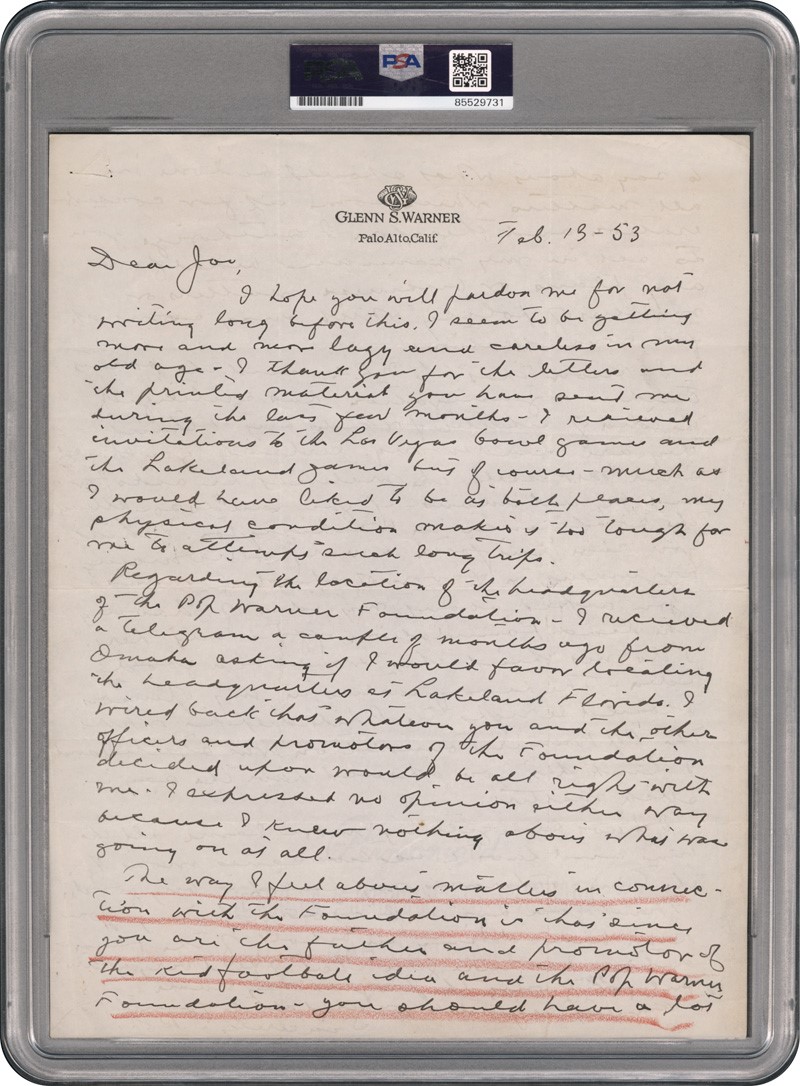 PSA
85529731
GLENN S. WARNER
Palo Alto, Calif.
Feb. 13-53
Dear Joe,
I hope you will pardon me for not
writing long before this. I seem to be getting
more and more lazy and careless in my
old age - I thank you for the letters and
the printed material you have sent me
during the last few months - I received
invitations to the Las Vegas bowl games and
the Lakeland games but of course - much as
I would have liked to be at both places, my
physical condition makes it too tough for
me to attempt such long trips.
Regarding the location of the headquarters
of the Pop Warner Foundation - I received
a telegram a couple of months ago from
Omaha asking if I would favor locating
the headquarters at Lakeland Florida. I
wired back that whatever you and the other
officers and promotors of the Foundation
decided upon would be all right with
me - I expressed no opinion either way
because I knew nothing about what was
going on at all.
The way I feel about matters in connec-
tion with the Foundation is that since
you are the father and promotor of
the kid football idea and the Pop Warner
Foundation - you should have a lot